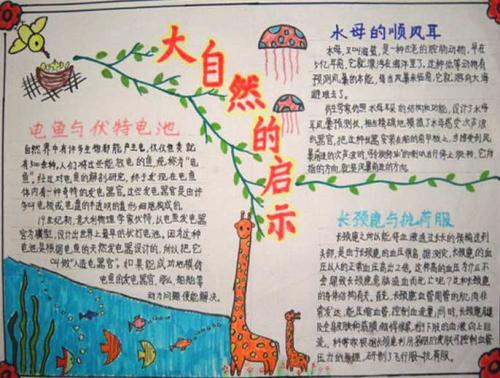 大自然的启示
电鱼与伏特电池
自然界中有许多生物都能产生电,仅仅鱼类就
有500余种,人们将这些能放电的鱼,统称为“电
鱼”。经过对电鱼的解剖研究,终于发现在电鱼
体内有一种奇特的发电器官,这些发电器官是由许
多叫电板或电盘的半透明的盘形细胞构成的。
19世纪初,意大利物理学家伏特,以电鱼发电器官
为模型,设计出世界上最早的伏打电池。因为这种
电池是根据电鱼的天然发电器设计的,所以把它
叫做“人造电器官”。如果能成功地模仿
电鱼的发电器官,那么,船舶等
动力问题便能解决。
水母的顺风耳
水母,又叫海蜇,是一种古老的腔肠动物,早在
5亿年前,它就漂浮在海洋里了。这种低等动物有
预测风暴的本能,每当风暴来临前,它就游向大海
避难去了。
仿生学家仿照水母耳朵的结构和功能,设计了水母
耳风暴预测仪,相当精确地模拟了水母感受次声波的
器官。把这种仪器安装在船的前甲板上,当接受到风
暴的次声波时,
指的方向,就是风暴前进的方向。
长颈鹿与抗荷服
长颈鹿之所以能将血液通过长长的颈输送到
头部,是由于长颈鹿的血压很高。据测定,长颈鹿的血
压比人的正常血压高出2倍。这样高的血压为什么不
会使长颈鹿患脑溢血而死亡呢?这和长颈鹿
的身体结构有关。首先,长颈鹿血管周围的肌肉非
常发达,能压缩血管,控制血流量;同时,长颈鹿腿部
及全身的皮肤和筋膜绷得很紧,利于下肢的血液向上回
流。科学家根据长颈鹿利用紧绷的皮肤可控制血管
压力的原理,研制了飞行服—抗荷服。